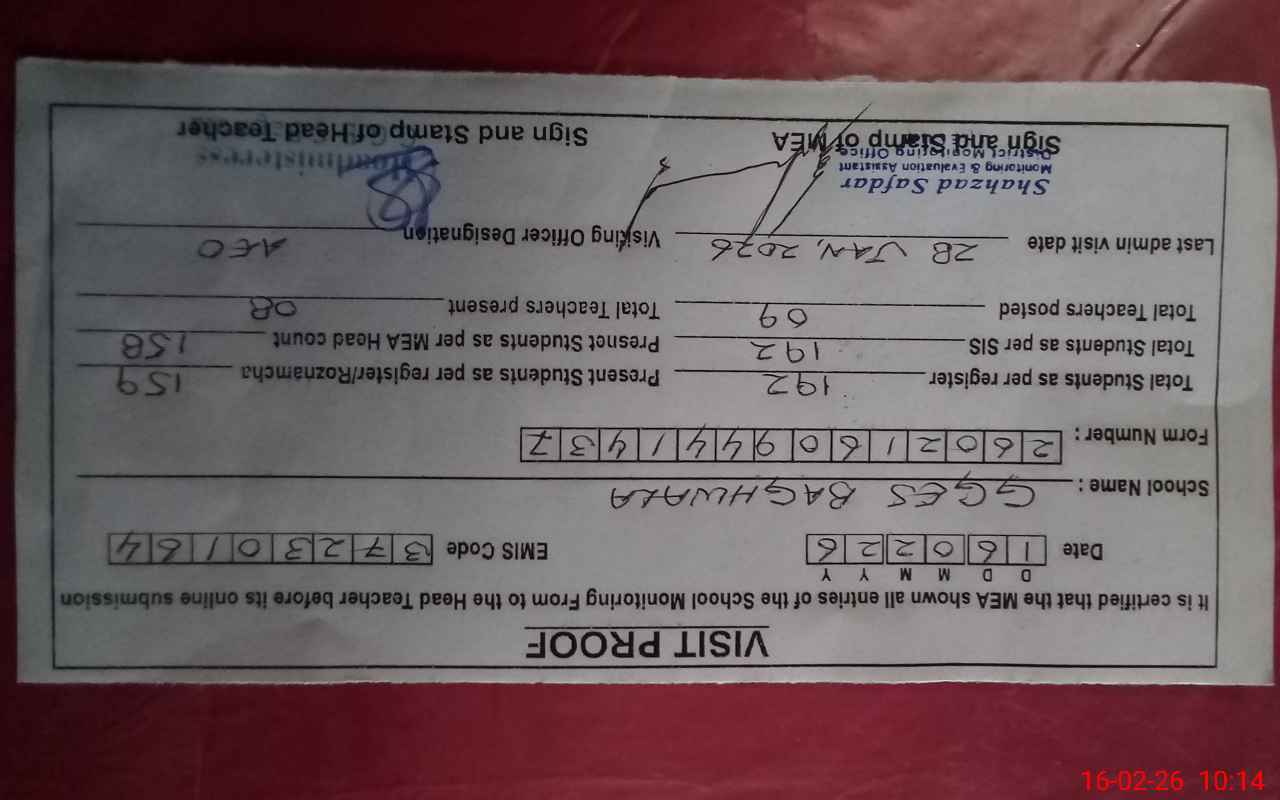 VISIT PROOF
It is certified that the MEA shown all entries of the School Monitoring From to the Head Teacher before its online submission
D D M M Y Y
Date 1 6 0 2 2 6 EMIS Code 3 7 2 3 0 1 6 4
School Name : GGES BAGHWALA
Form Number : 2 6 0 2 1 6 0 9 4 4 1 4 3 7
Total Students as per register 192 Present Students as per register/Roznamcha 159
Total Students as per SIS 192 Presnet Students as per MEA Head count 158
Total Teachers posted 09 Total Teachers present 08
Last admin visit date 28 JAN, 2026 Visiting Officer Designation AEO
Shahzad Safdar
Monitoring & Evaluation Assistant
District Monitoring Office
Headmisteress
Sign and Stamp of MEA Sign and Stamp of Head Teacher
16-02-26 10:14